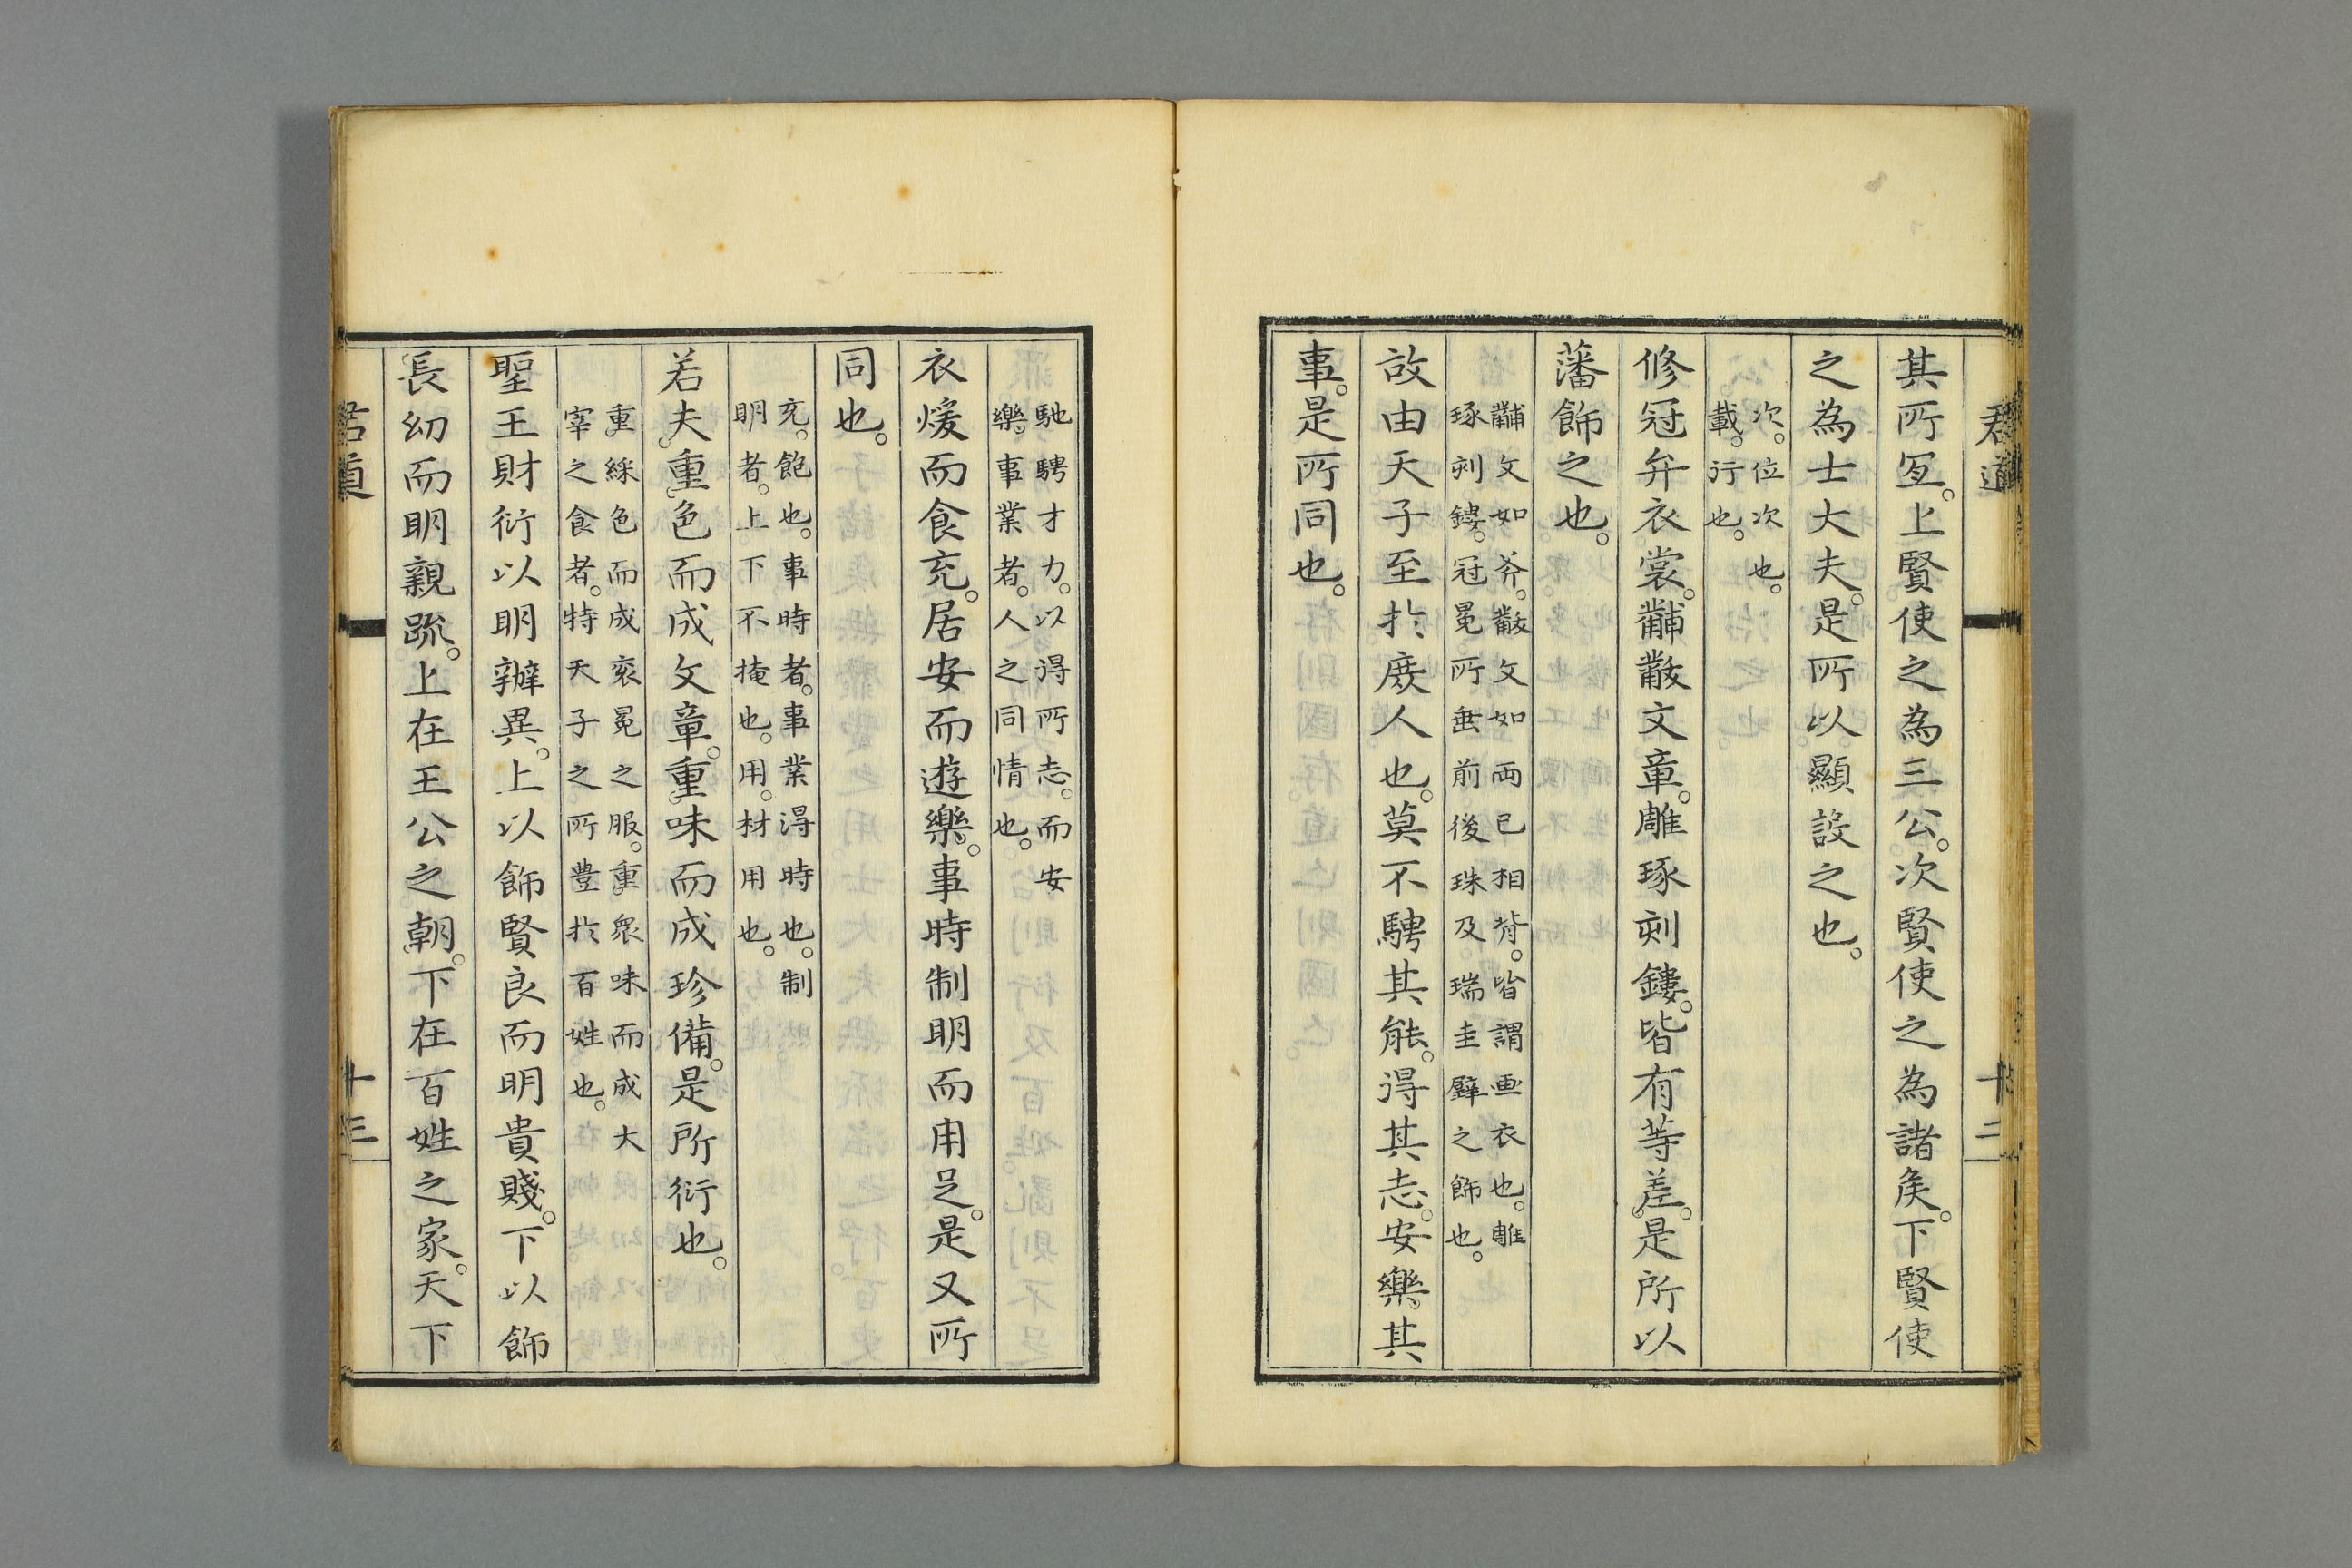 君道 十二
其所冝。上賢使之為三公。次賢使之為諸侯。下賢使
之為士大夫。是所以顯設之也。
次。位次也。
載。行也。
修冠弁衣裳。黼黻文章。雕琢刻鏤。皆有等差。是所以
藩飾之也。
黼文如斧。黻文如両已相背。皆謂画衣也。雕
琢刻鏤。冠冕所垂前後珠及瑞圭璧之飾也。
故由天子至於庶人也。莫不騁其能。得其志。安樂其
事。是所同也。
馳騁才力。以得所志。而安
樂事業者。人之同情也。
衣煖而食充。居安而遊樂。事時制明而用足。是又所
同也。
充。飽也。事時者。事業得時也。制
明者。上下不掩也。用。材用也。
若夫重色而成文章。重味而成珍備。是所衍也。
重綵色而成袞冕之服。重衆味而成大
宰之食者。特天子之所豊於百姓也。
聖王財衍以明辨異。上以飾賢良而明貴賤。下以飾
長幼而明親疏。上在王公之朝。下在百姓之家。天下
君道 十三